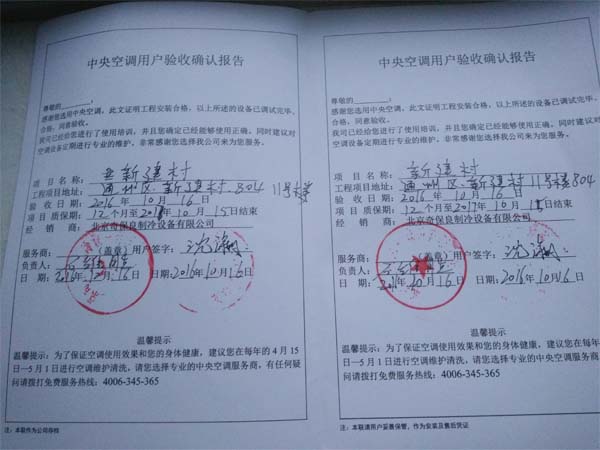 中央空调用户验收确认报告
尊敬的________:
感谢您选用中央空调，此文证明工程安装合格，以上所述的设备已调试完毕、
合格，同意验收。
我司已经给您进行了使用培训，并且您确定已经能够使用正确。同时建议对
空调设备定期进行专业的维护，非常感谢您选择我公司来为您服务。
项 目 名 称: 新建村
工程项目地址: 通州区 新建村 804 11号楼
验 收 日 期: 2016 年 10 月 16 日
项 目 质保期: 12 个月至 2017 年 10 月 15 日结束
经 销 商: 北京奇保良制冷设备有限公司
服务商: (盖章) 用户签字: 沈
负责人:
日 期: 2016年 月16日 日期: 2016年10月16日
温馨提示
温馨提示：为了保证空调使用效果和您的身体健康，建议您在每年的 4 月 15
日—5 月 1 日进行空调维护清洗，请您选择专业的中央空调服务商，有任何疑
问请拨打免费服务热线：4006-345-365
注：本联作为公司存档
中央空调用户验收确认报告
尊敬的________:
感谢您选用中央空调，此文证明工程安装合格，以上所述的设备已调试完毕、
合格，同意验收。
我司已经给您进行了使用培训，并且您确定已经能够使用正确。同时建议对
空调设备定期进行专业的维护，非常感谢您选择我公司来为您服务。
项 目 名 称: 新建村
工程项目地址: 通州区 新建村 11号楼804
验 收 日 期: 2016 年 10 月 16 日
项 目 质保期: 12 个月至 2017 年 10 月 15 日结束
经 销 商: 北京奇保良制冷设备有限公司
服务商: (盖章) 用户签字: 沈
负责人:
日 期: 2016年10月16日 日期: 2016年10月16日
温馨提示
温馨提示：为了保证空调使用效果和您的身体健康，建议您在每年的 4 月 15
日—5 月 1 日进行空调维护清洗，请您选择专业的中央空调服务商，有任何疑
问请拨打免费服务热线：4006-345-365
注：本联请用户妥善保管，作为安装及售后凭证